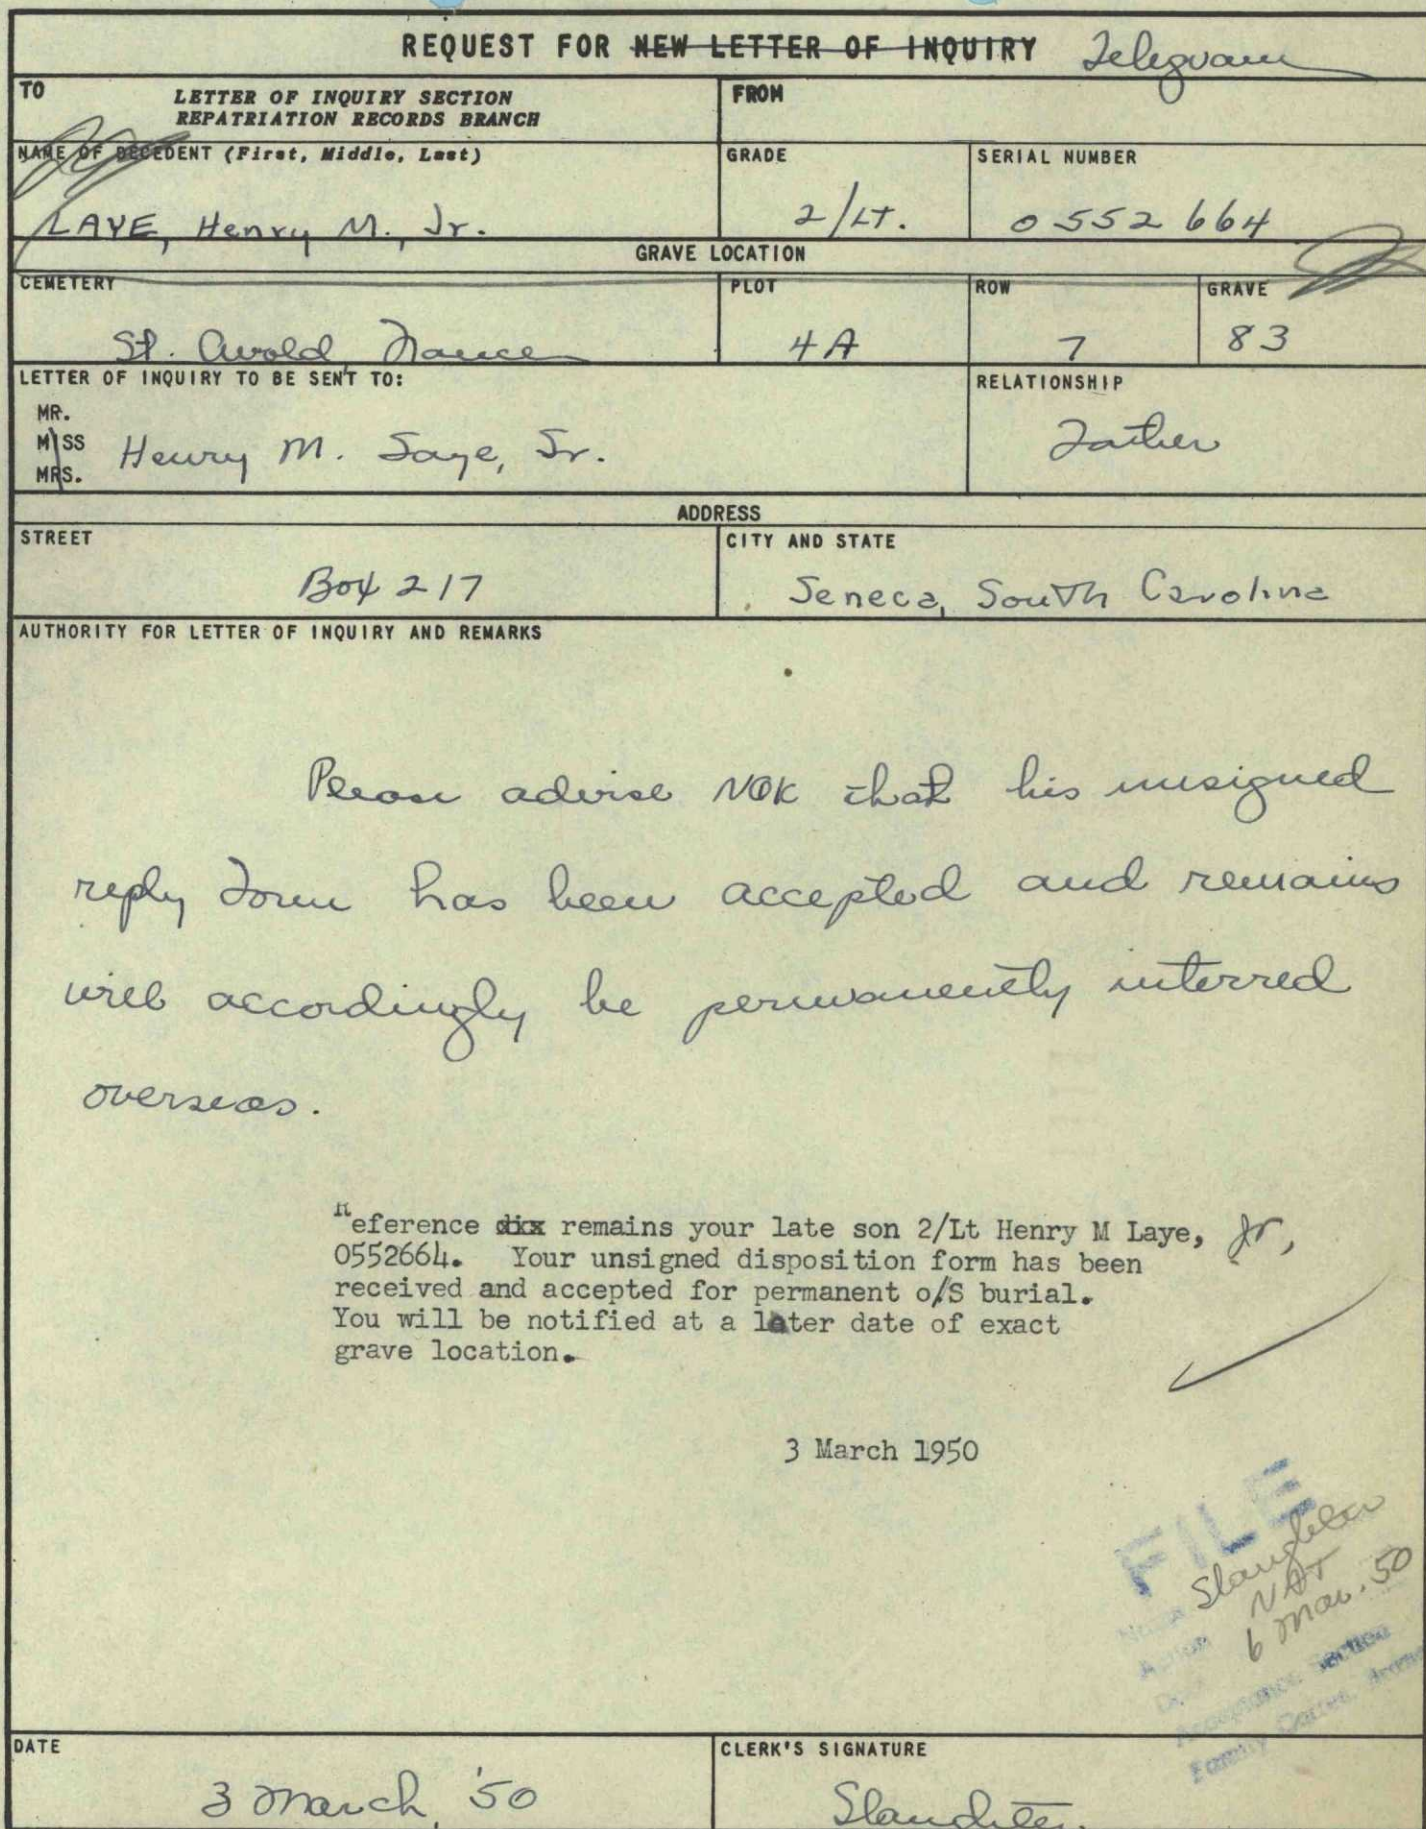 REQUEST FOR NEW LETTER OF INQUIRY Telegram
TO
LETTER OF INQUIRY SECTION
REPATRIATION RECORDS BRANCH
FROM
NAME OF DECEDENT (First, Middle, Last)
GRADE
SERIAL NUMBER
LAYE, Henry M., Jr.
2/LT.
0552664
GRAVE LOCATION
CEMETERY
PLOT
ROW
GRAVE
St. Avold France
4A
7
83
LETTER OF INQUIRY TO BE SENT TO:
RELATIONSHIP
MR.
MISS
MRS.
Henry M. Laye, Sr.
Father
ADDRESS
STREET
CITY AND STATE
Box 217
Seneca, South Carolina
AUTHORITY FOR LETTER OF INQUIRY AND REMARKS
Please advise NOK that his unsigned
reply form has been accepted and remains
will accordingly be permanently interred
overseas.
Reference dix remains your late son 2/Lt Henry M Laye, Jr,
0552664. Your unsigned disposition form has been
received and accepted for permanent o/S burial.
You will be notified at a later date of exact
grave location.
3 March 1950
FILE
Slaughter
NAT
6 Mar. 50
Acceptance Section
DATE
CLERK'S SIGNATURE
3 March, '50
Slaughter